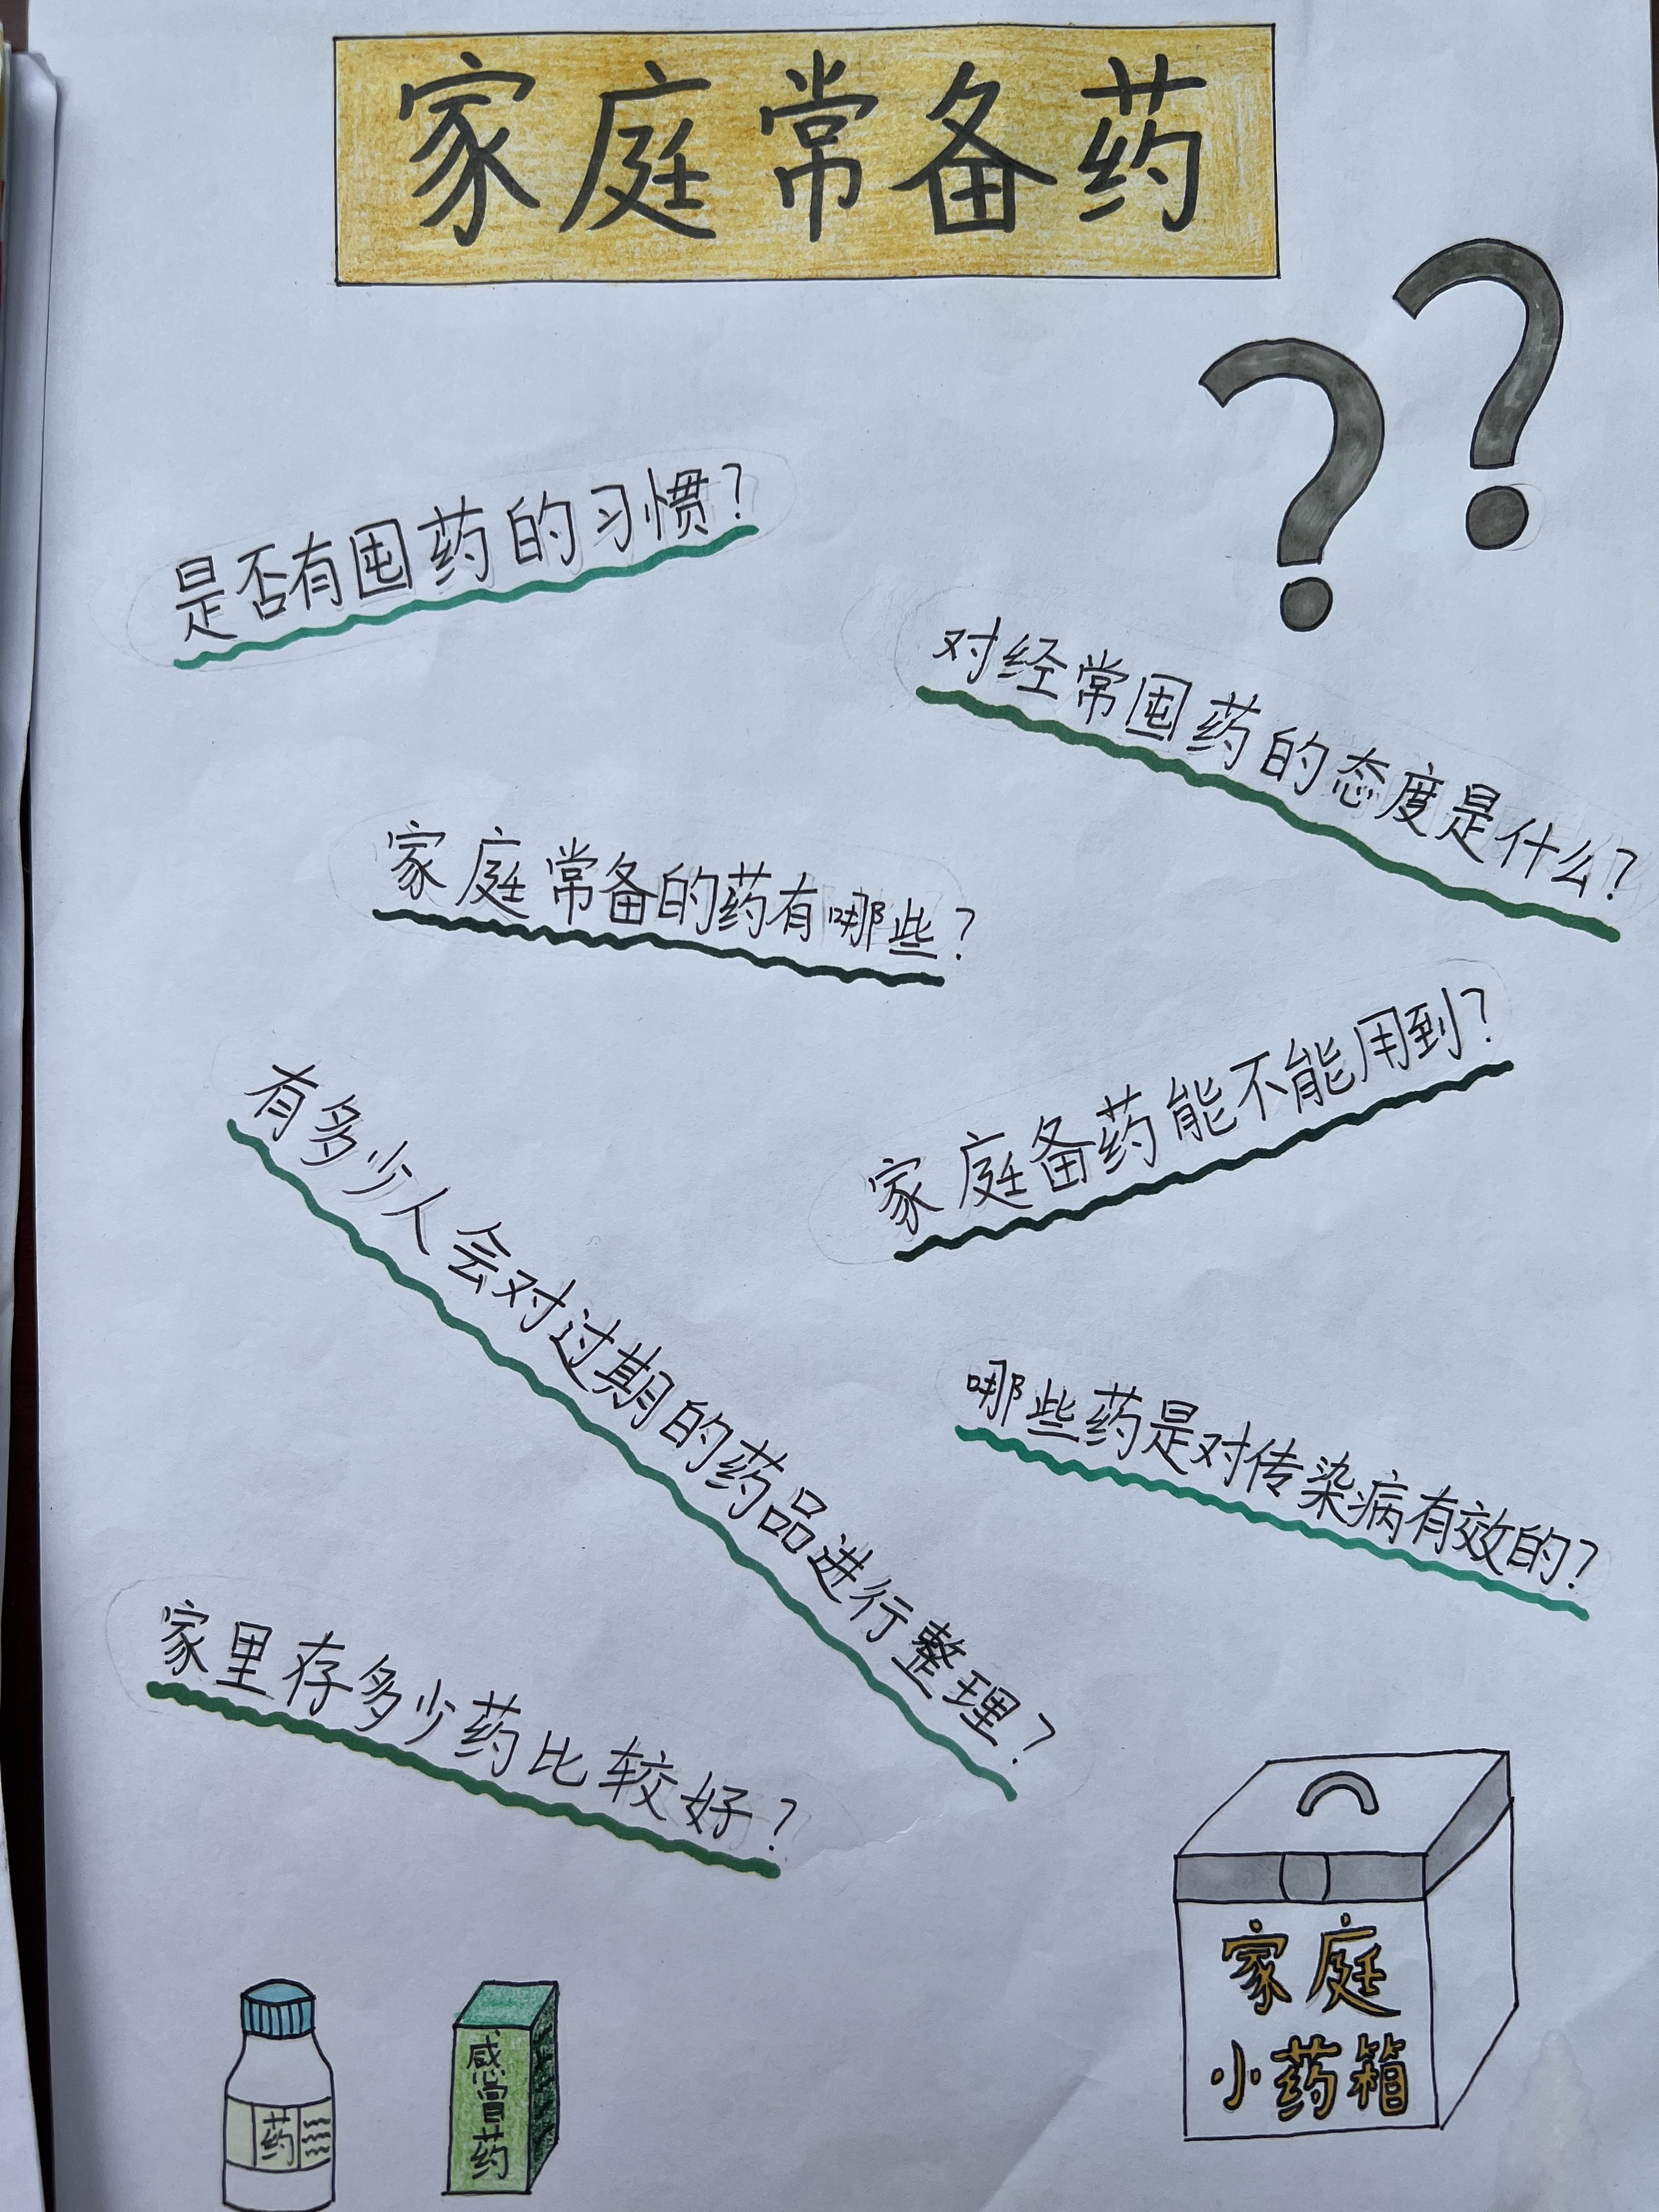 家庭常备药
是否有囤药的习惯?
对经常囤药的态度是什么?
家庭常备的药有哪些?
家庭备药能不能用到?
有多少人会对过期的药品进行整理?
哪些药是对传染病有效的?
家里存多少药比较好?
家庭
小药箱
药
感冒药